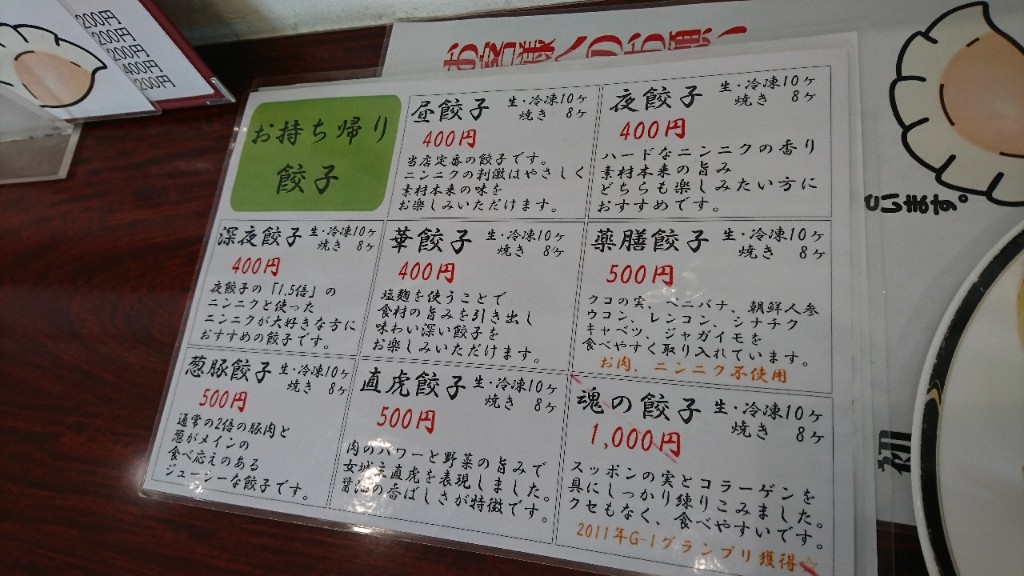 200円
200円
200円
400円
250円
お客様へのお願い
お持ち帰り
餃子
昼餃子 生・冷凍10ヶ
焼き 8ヶ
400円
当店定番の餃子です。
ニンニクの刺激はやさしく
素材本来の味を
お楽しみいただけます。
夜餃子 生・冷凍10ヶ
焼き 8ヶ
400円
ハードなニンニクの香り
素材本来の旨み
どちらも楽しみたい方に
おすすめです。
深夜餃子 生・冷凍10ヶ
焼き 8ヶ
400円
夜餃子の「1.5倍」の
ニンニクと使った
ニンニクが大好きな方に
おすすめの餃子です。
華餃子 生・冷凍10ヶ
焼き 8ヶ
400円
塩麹を使うことで
食材の旨みを引き出し
味わい深い餃子を
お楽しみいただけます。
薬膳餃子 生・冷凍10ヶ
焼き 8ヶ
500円
クコの実、ベニバナ、朝鮮人参
ウコン、レンコン、シナチク
キャベツ、ジャガイモを
食べやすく取り入れています。
お肉、ニンニク不使用
葱豚餃子 生・冷凍10ヶ
焼き 8ヶ
500円
通常の2倍の豚肉と
葱がメインの
食べ応えのある
ジューシーな餃子です。
直虎餃子 生・冷凍10ヶ
焼き 8ヶ
500円
肉のパワーと野菜の旨みで
女地主直虎を表現しました。
醤油の香ばしさが特徴です。
魂の餃子 生・冷凍10ヶ
焼き 8ヶ
1,000円
スッポンの実とコラーゲンを
具にしっかり練りこみました。
クセもなく、食べやすいです。
2011年G-1グランプリ獲得☆
います。
初